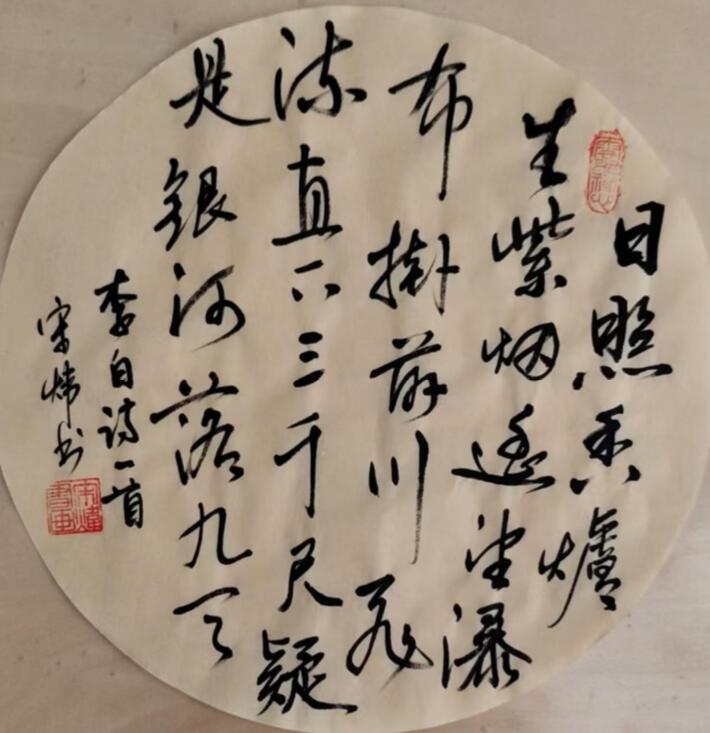 日照香爐
生紫烟遙望瀑
布掛前川飛
流直下三千尺疑
是銀河落九天
李白诗一首
宋炜书